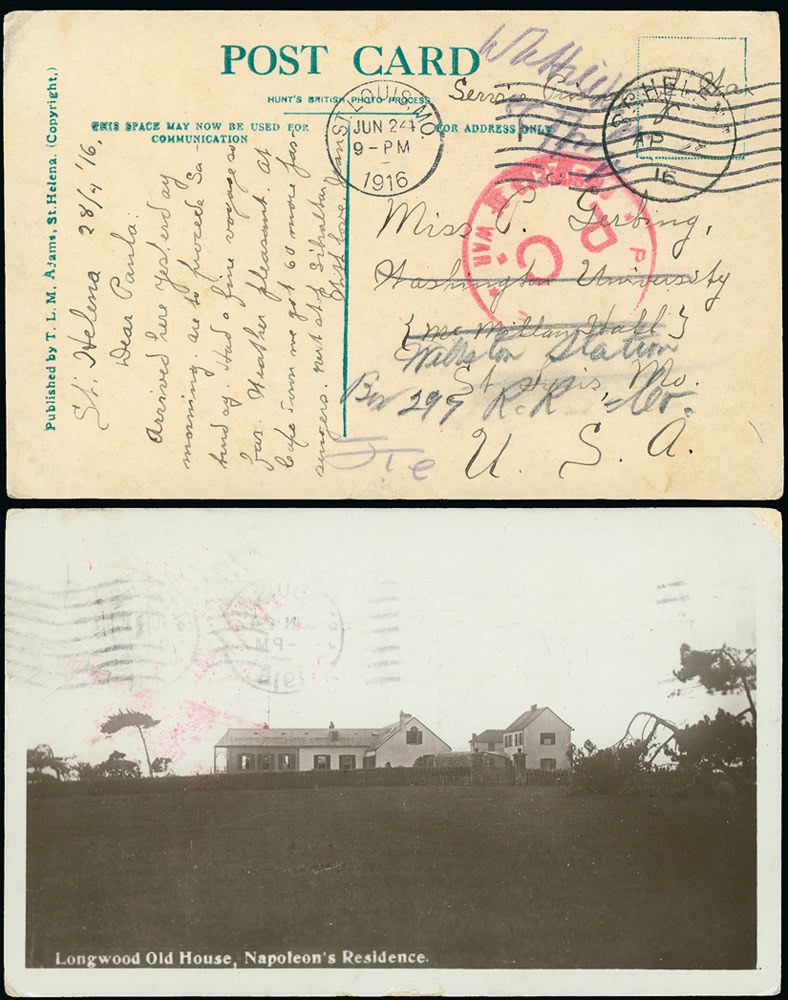 POST CARD
HUNT'S BRITISH PHOTO PROCESS
THIS SPACE MAY NOW BE USED FOR
COMMUNICATION
FOR ADDRESS ONLY
Published by T. L. M. Adams, St. Helena. (Copyright.)
St. Helena 28/4 '16.
Dear Paula:
Arrived here yesterday
morning are to proceed Sa-
turday. Had a fine voyage so
far. Weather pleasant. At
Cape Town we got 60 more pas
sengers. Next stop Gibraltar
With love,
ST. LOUIS, MO.
JUN 24
9-PM
1916
ST. HELENA
AP
16
Service
of War
P.C.
WAR
Miss P. Gerbing,
Washington University
{McMillan Hall}
Wellston Station
St. Louis, Mo.
Box 297 R.R. Mo.
U. S. A.
Longwood Old House, Napoleon's Residence.